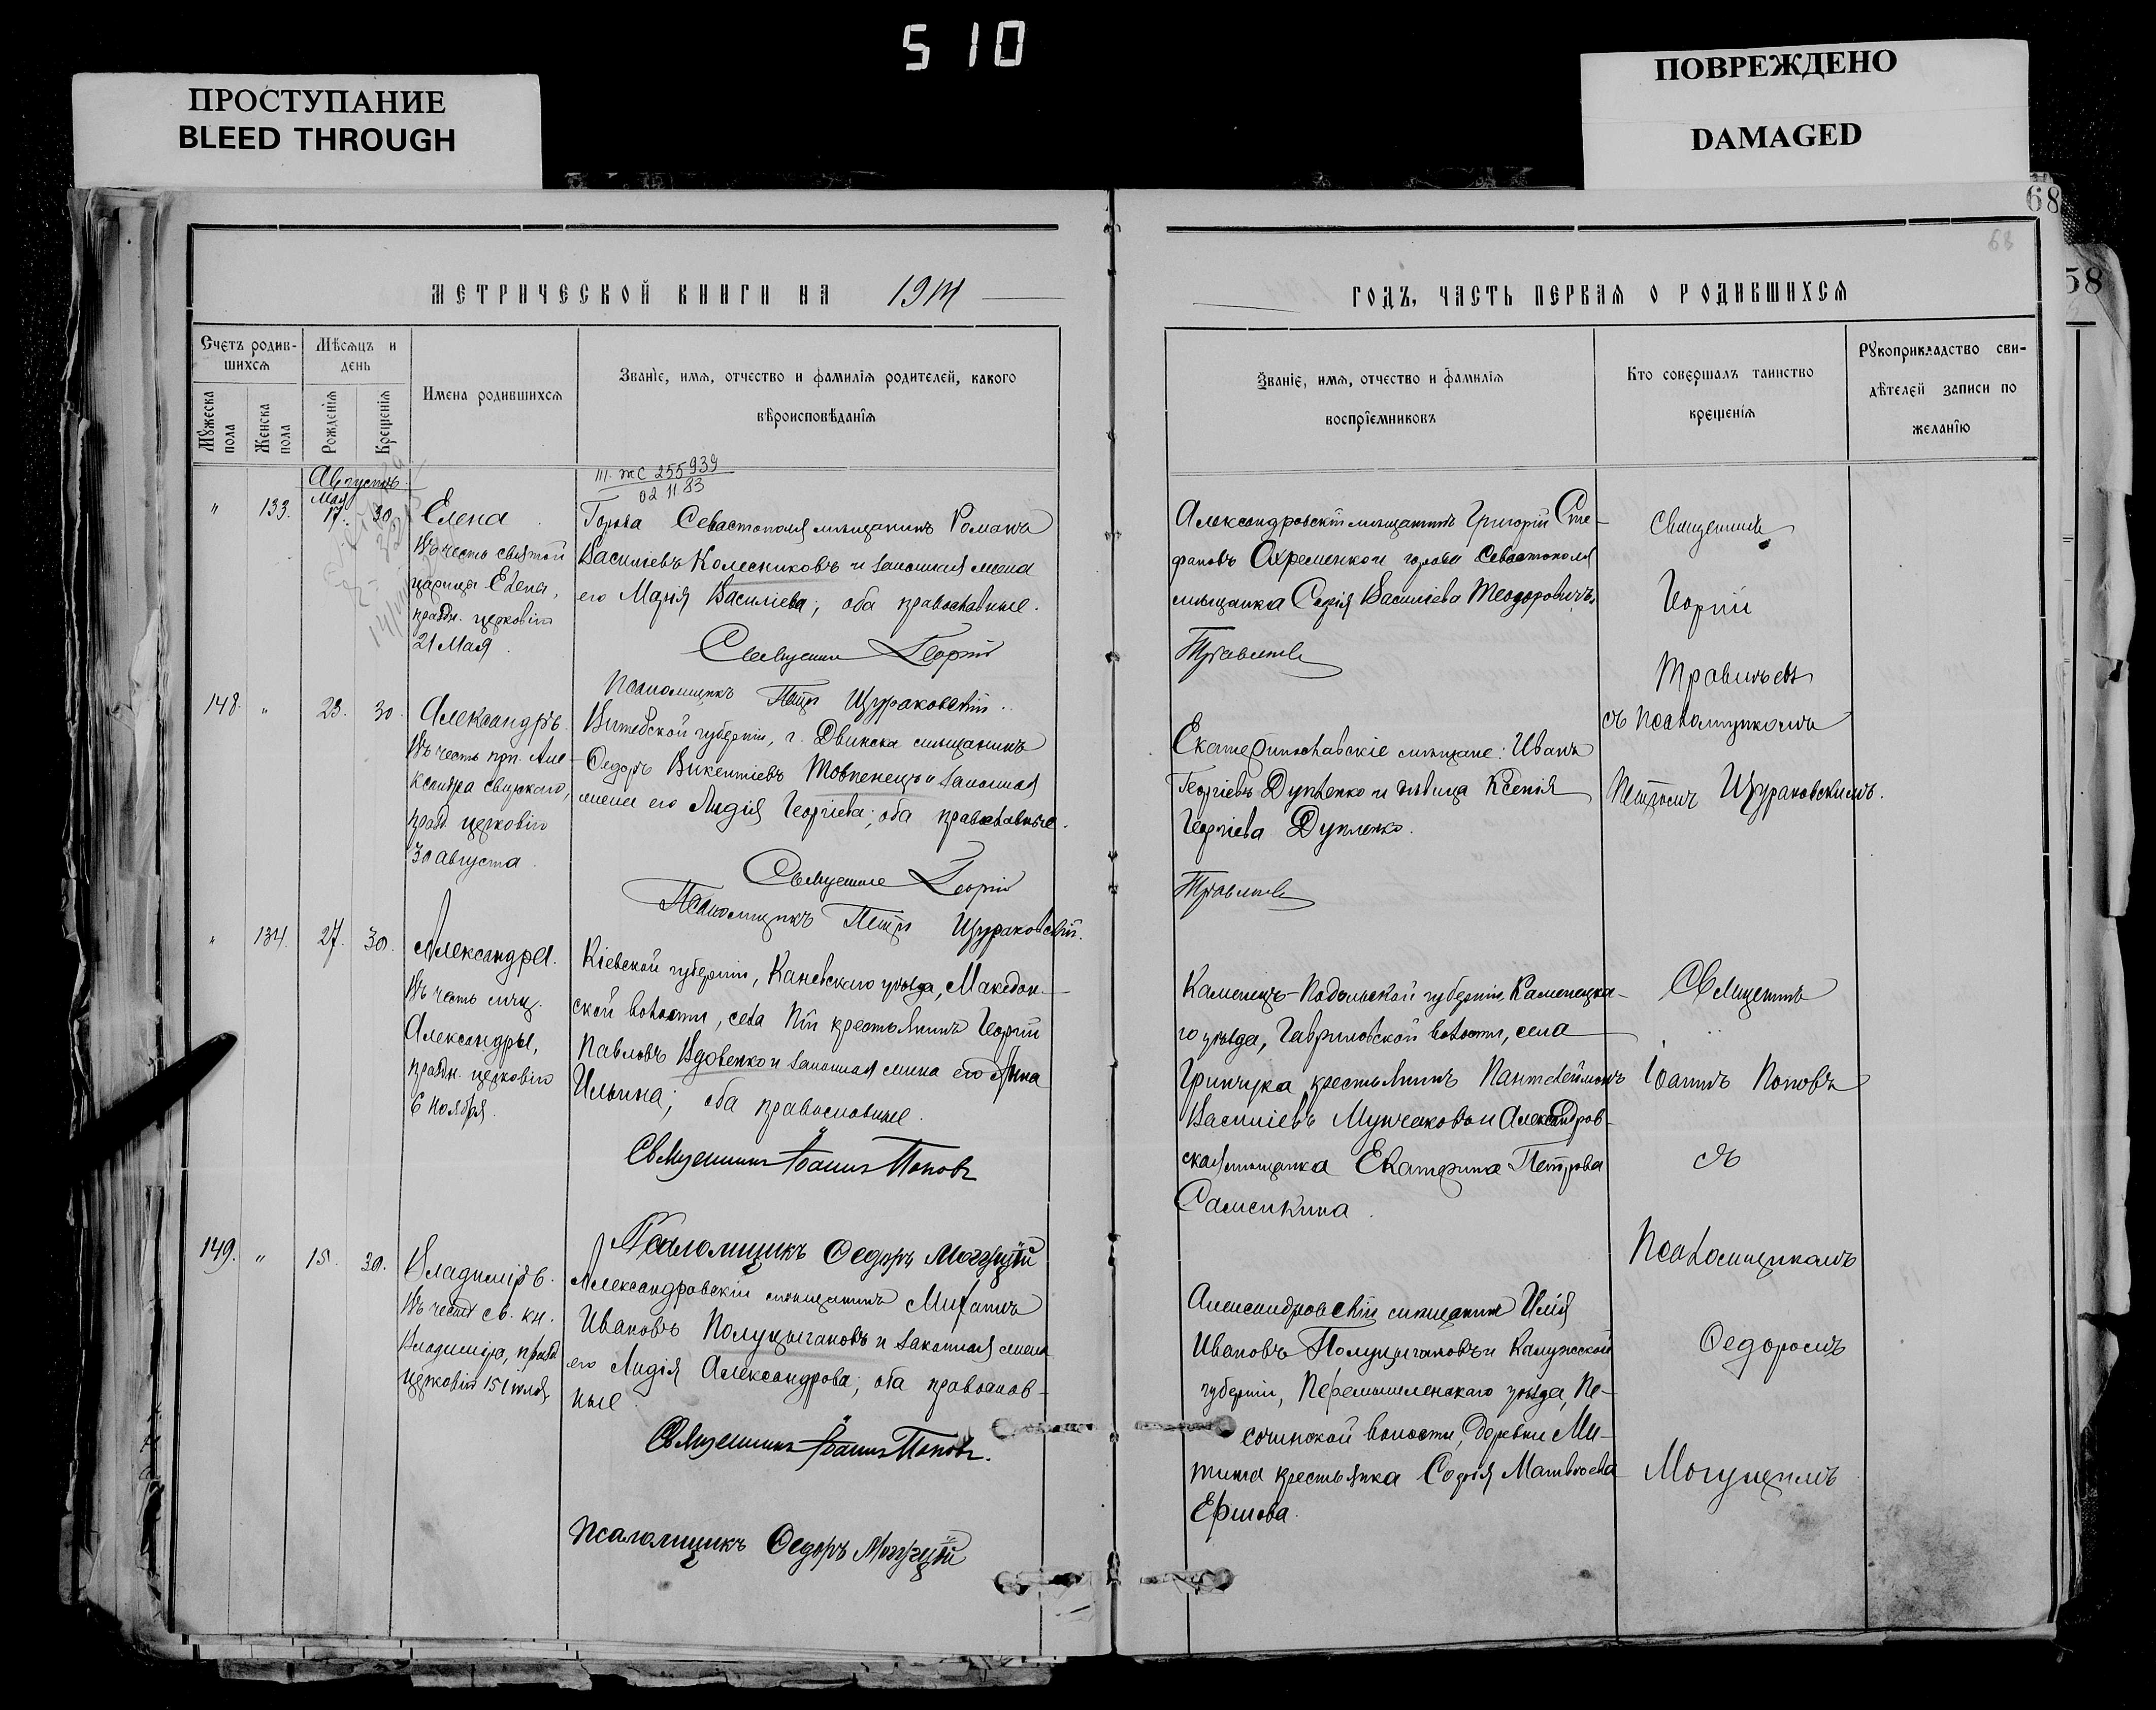 510
ПРОСТУПАНИЕ
BLEED THROUGH
ПОВРЕЖДЕНО
DAMAGED
68
68
58
МЕТРИЧЕСКОЙ КНИГИ НА 1914
ГОДЪ, ЧАСТЬ ПЕРВАЯ О РОДИВШИХСЯ
Счетъ родив-
шихся
Мѣсяцъ и
день
Мужеска
пола
Женска
пола
Рожденія
Крещенія
Имена родившихся
Званіе, имя, отчество и фамилія родителей, какого
вѣроисповѣданія
Званіе, имя, отчество и фамилія
воспріемниковъ
Кто совершалъ таинство
крещенія
Рукоприкладство сви-
дѣтелей записи по
желанію
Августъ
III. ЖС 255939
02 11 83
" 133. Мая 17. 30.
Елена
Въ честь святой
царицы Елены,
праздн. церковію
21 Мая.
Города Севастополя мѣщанинъ Романъ
Васильевъ Колесниковъ и законная жена
его Марія Васильева; оба православные.
Священникъ Георгій
Псаломщикъ Петръ Щураковскій.
Александровскій мѣщанинъ Григорій Сте-
фановъ Охременко и города Севастополя
мѣщанка Софія Васильева Теодоровичъ.
Травинъевъ
Священникъ
Георгій
Травинъевъ
съ псаломщикомъ
Петромъ Щураковскимъ.
148. " 23. 30.
Александръ.
Въ честь прп. Але-
ксандра Свирскаго,
празд. церковію
30 августа.
Витебской губерніи, г. Двинска мѣщанинъ
Ѳедоръ Викентіевъ Товпенецъ и законная
жена его Лидія Георгіева; оба православные.
Священникъ Георгій
Псаломщикъ Петръ Щураковскій.
Екатеринославскіе мѣщане: Иванъ
Георгіевъ Дупленко и дѣвица Ксенія
Георгіева Дупленко.
Травинъевъ
" 134. 27. 30.
Александра.
Въ честь мчц.
Александры,
праздн. церковію
6 ноября.
Кіевской губерніи, Каневскаго уѣзда, Македон-
ской волости, села Пій крестьянинъ Георгій
Павловъ Вдовенко и законная жена его Анна
Ильина; оба православные.
Священникъ Іоаннъ Поповъ
Псаломщикъ Ѳедоръ Могущій
Каменецъ-Подольской губерніи, Каменецка-
го уѣзда, Гавриловской волости, села
Гринчука крестьянинъ Пантелеймонъ
Васильевъ Мунчаковъ и Александров-
ская мѣщанка Екатерина Петрова
Саменкина.
Священникъ
Іоаннъ Поповъ
съ
Псаломщикомъ
Ѳедоромъ
Могущимъ
149. " 15. 30.
Владиміръ.
Въ честь св. кн.
Владиміра, празд.
церковію 15 іюля.
Александровскій мѣщанинъ Михаилъ
Ивановъ Полуцыгановъ и законная жена
его Лидія Александрова; оба православ-
ные.
Священникъ Іоаннъ Поповъ.
Псаломщикъ Ѳедоръ Могущій
Александровскій мѣщанинъ Илія
Ивановъ Полуцыгановъ и Калужской
губерніи, Перемышленскаго уѣзда, Пе-
сочинской волости, деревни Ми-
тина крестьянка Софія Матвѣева
Ершова.